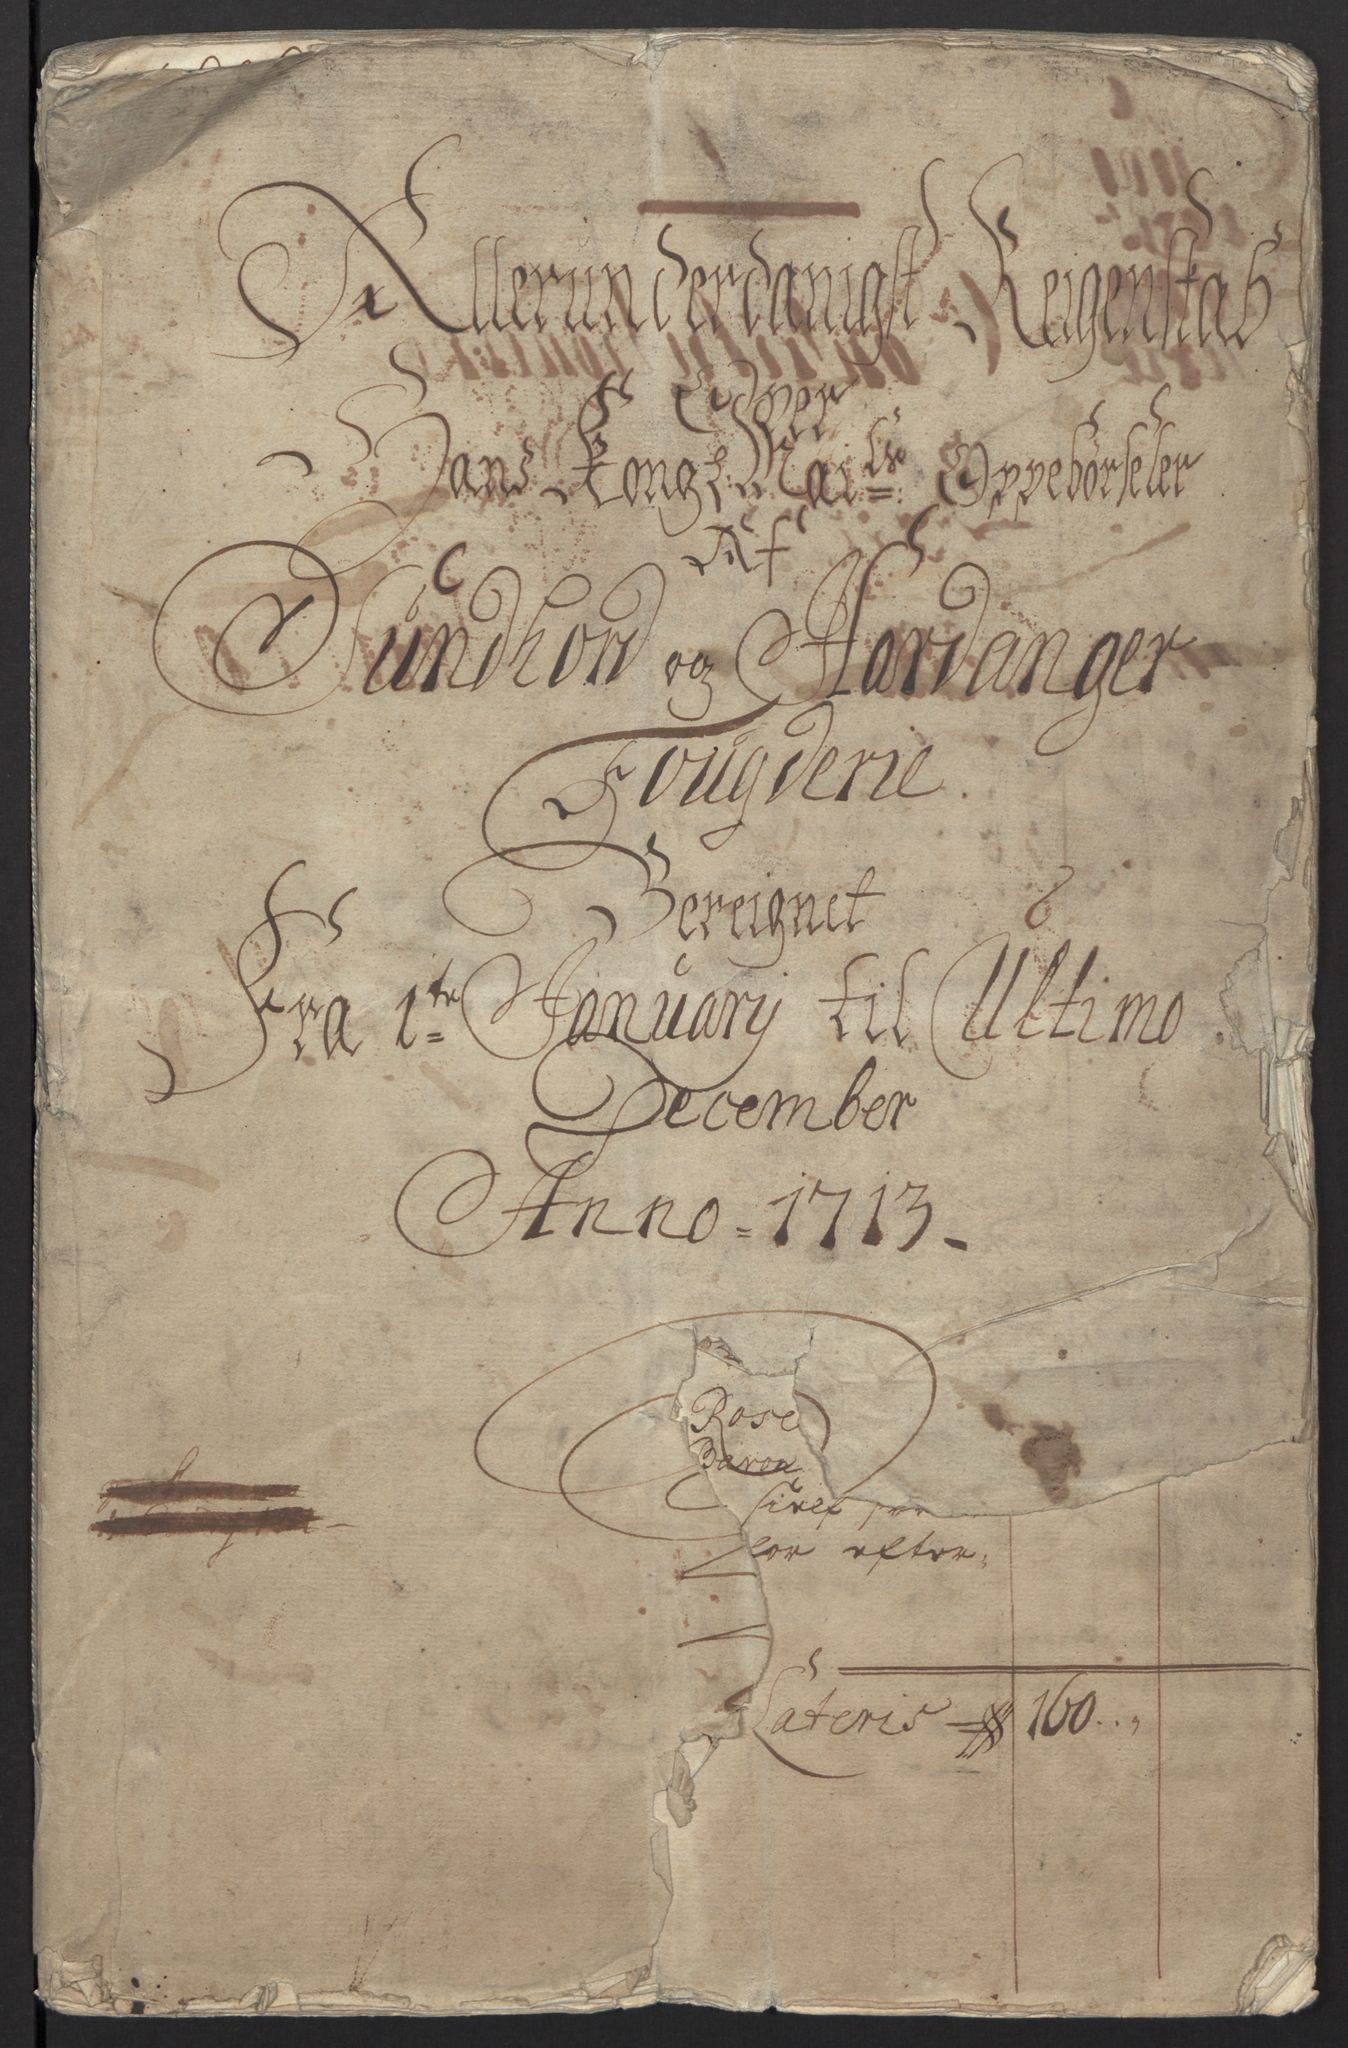 Allerunderdanigst Reigenskab
Over
Hans Kongl: Maits: Oppebørseler
Af
Sundhord og Hardanger
Fougderie.
Bereignet
Fra 1te January til Ultimo
December
Anno = 1713 -
Rose
Baron
for efter
Lateris - 160